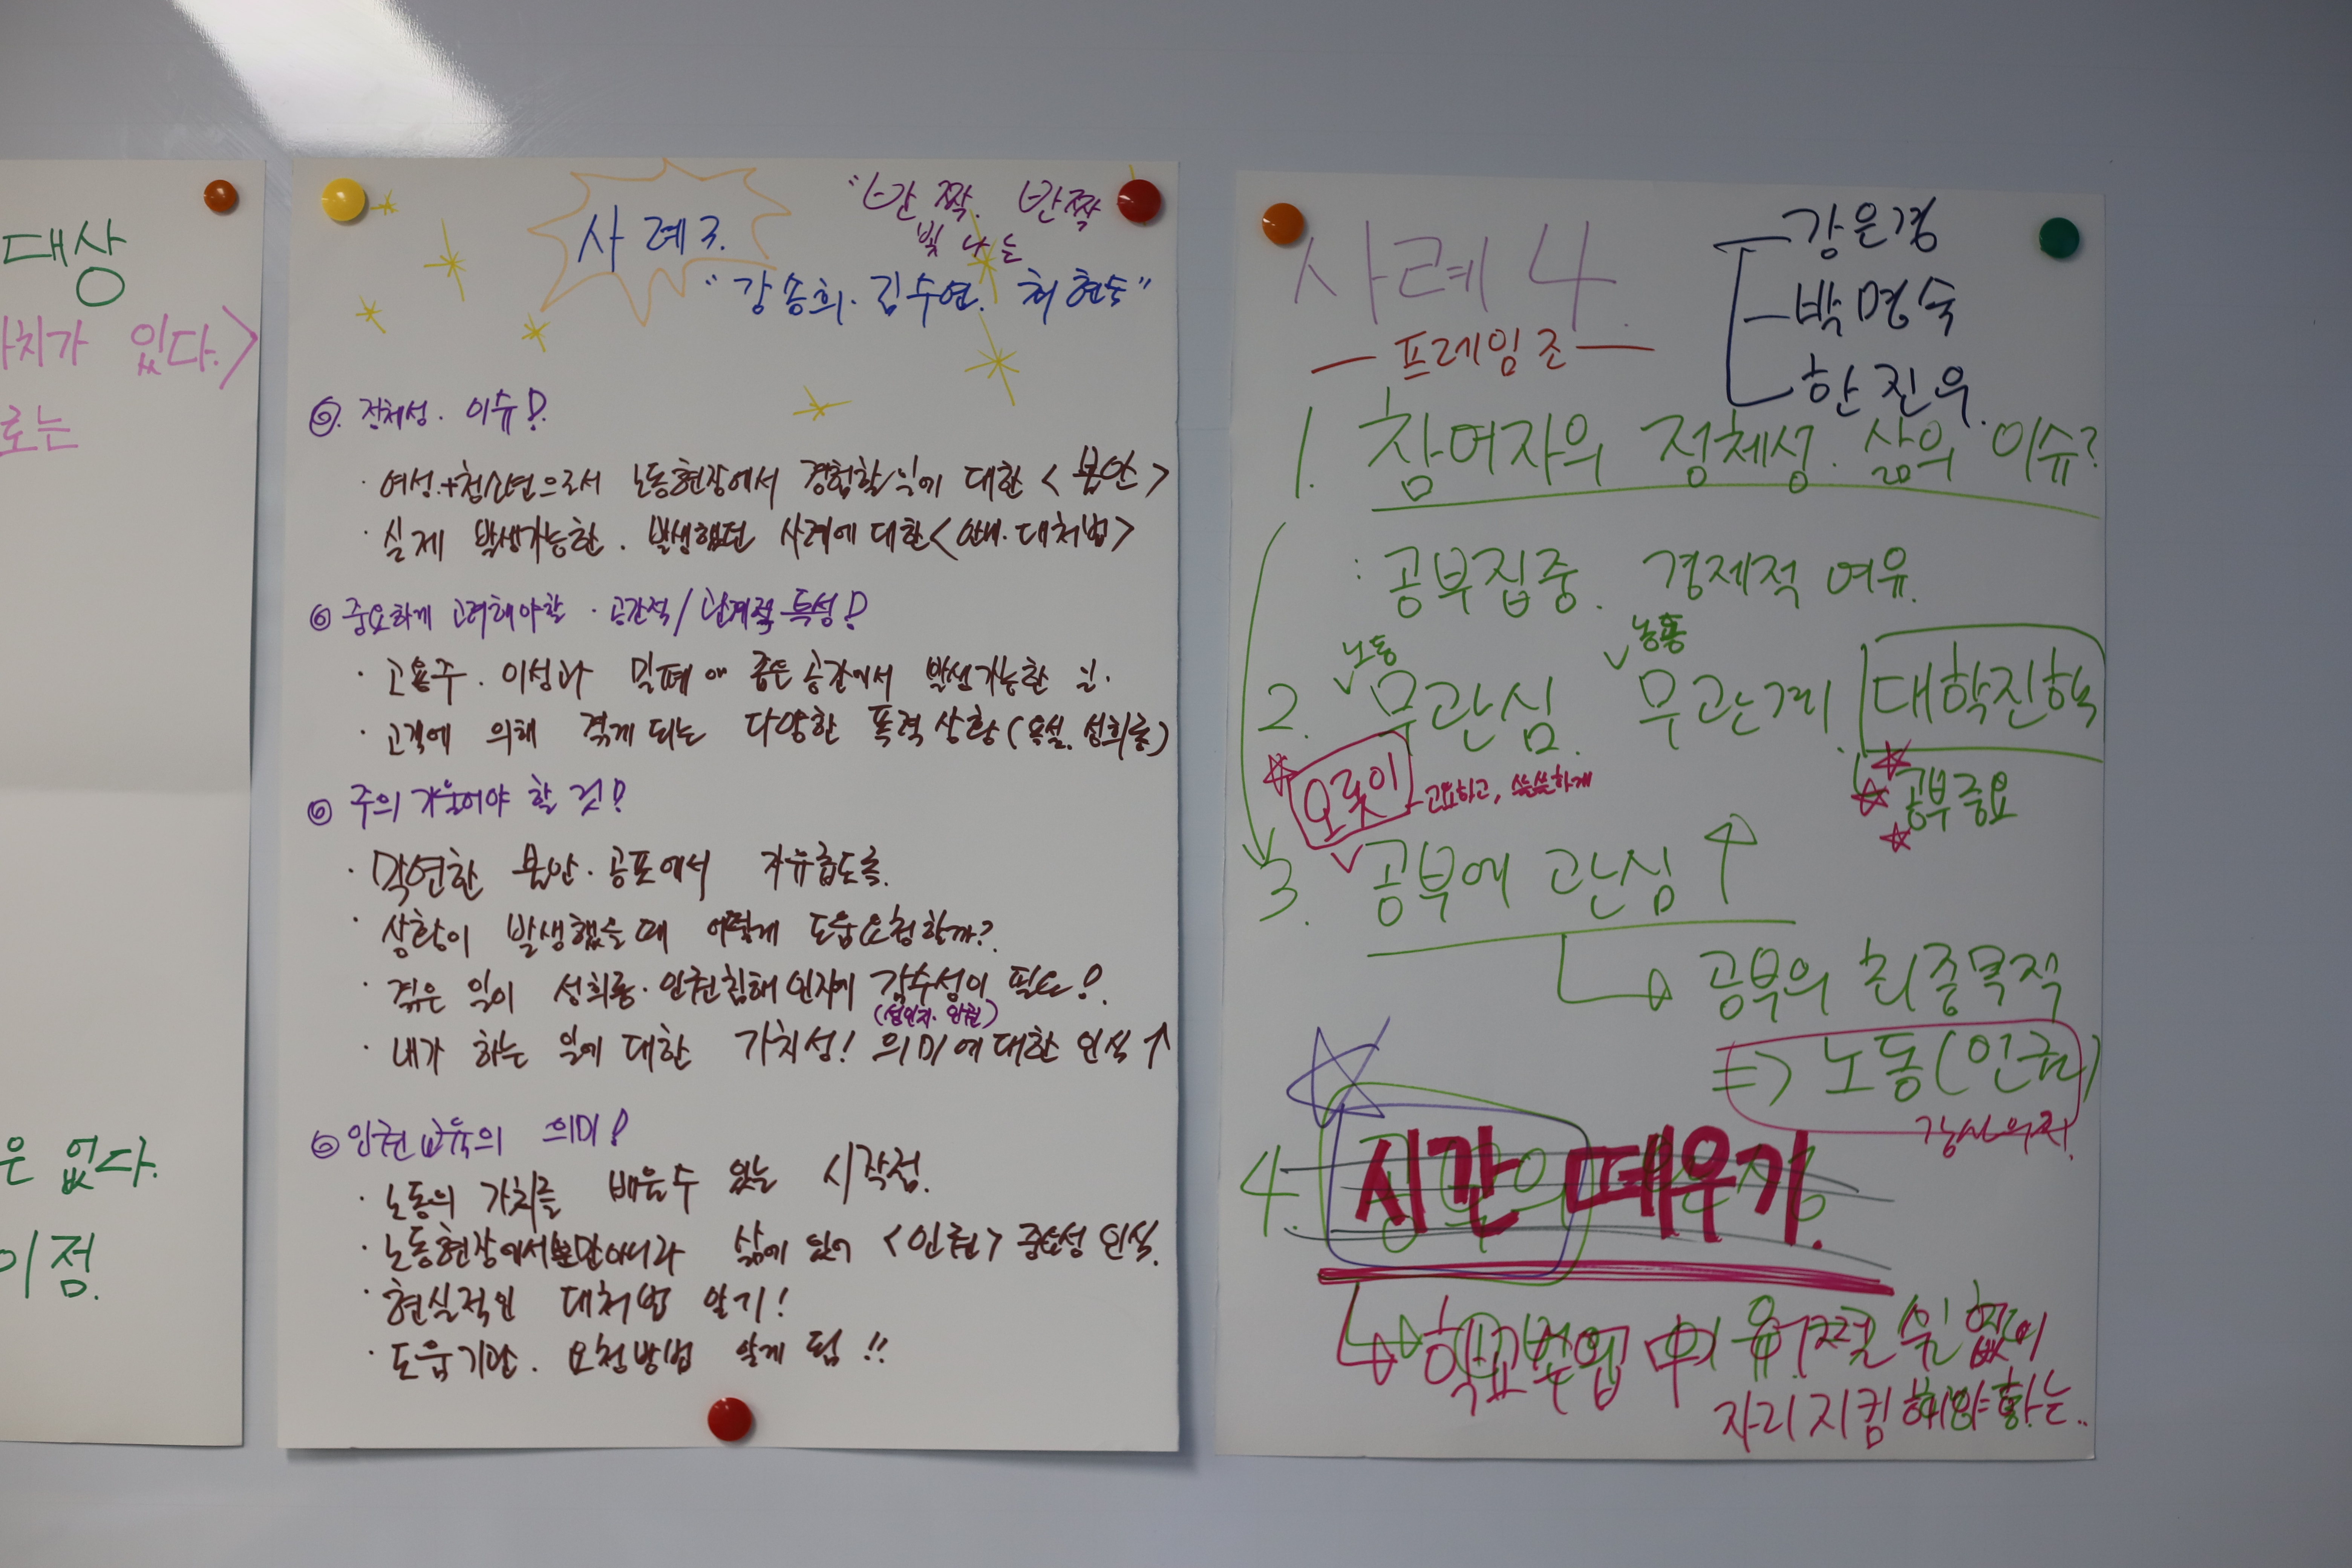 대상
가치가 있다.>
로는
은 없다.
이점.
사례 3.
"반짝. 반짝
빛나는
"강송희. 김수연. 허현
◎. 정체성. 이슈!?
· 여성.+청소년으로서 노동현장에서 경험할 일에 대한 <불안>
· 실제 발생가능한. 발생했던 사례에 대한 <안내. 대처법>
◎ 중요하게 고려해야할 · 공간적/관계적 특성!?
· 고용주. 이성과 밀폐 좁은 공간에서 발생가능한 일.
· 고객에 의해 겪게 되는 다양한 폭력 상황 (욕설. 성희롱)
◎ 주의 기울여야 할 것!?
· 막연한 불안. 공포에서 자유롭도록.
· 상황이 발생했을때 어떻게 도움요청할까?
· 겪은 일이 성희롱. 인권침해 인지에 감수성이 필요!?
(성인지. 인권)
· 내가 하는 일에 대한 가치성! 의미에 대한 인식 ↑
◎ 인권교육의 의미!?
· 노동의 가치를 배울수 있는 시작점.
· 노동현장에서뿐만아니라 삶에 있어 <인권> 중요성 인식.
· 현실적인 대처법 알기!
· 도움기관. 요청방법 알게 됨!!
사례 4.
— 프레임조 —
강은경
박명숙
한진우.
1. 참여자의 정체성. 삶의 이슈?
: 공부집중. 경제적 여유.
노동
2. 무관심. 무관계. 대학진학
오롯이 고요하고, 쓸쓸하게
공부중요
3. 공부에 관심 ↑
↳ 공부의 최종목적
⇒ 노동(인권)
4. 시간 때우기.
↳ 학교수업
자리지킴 해야하는..